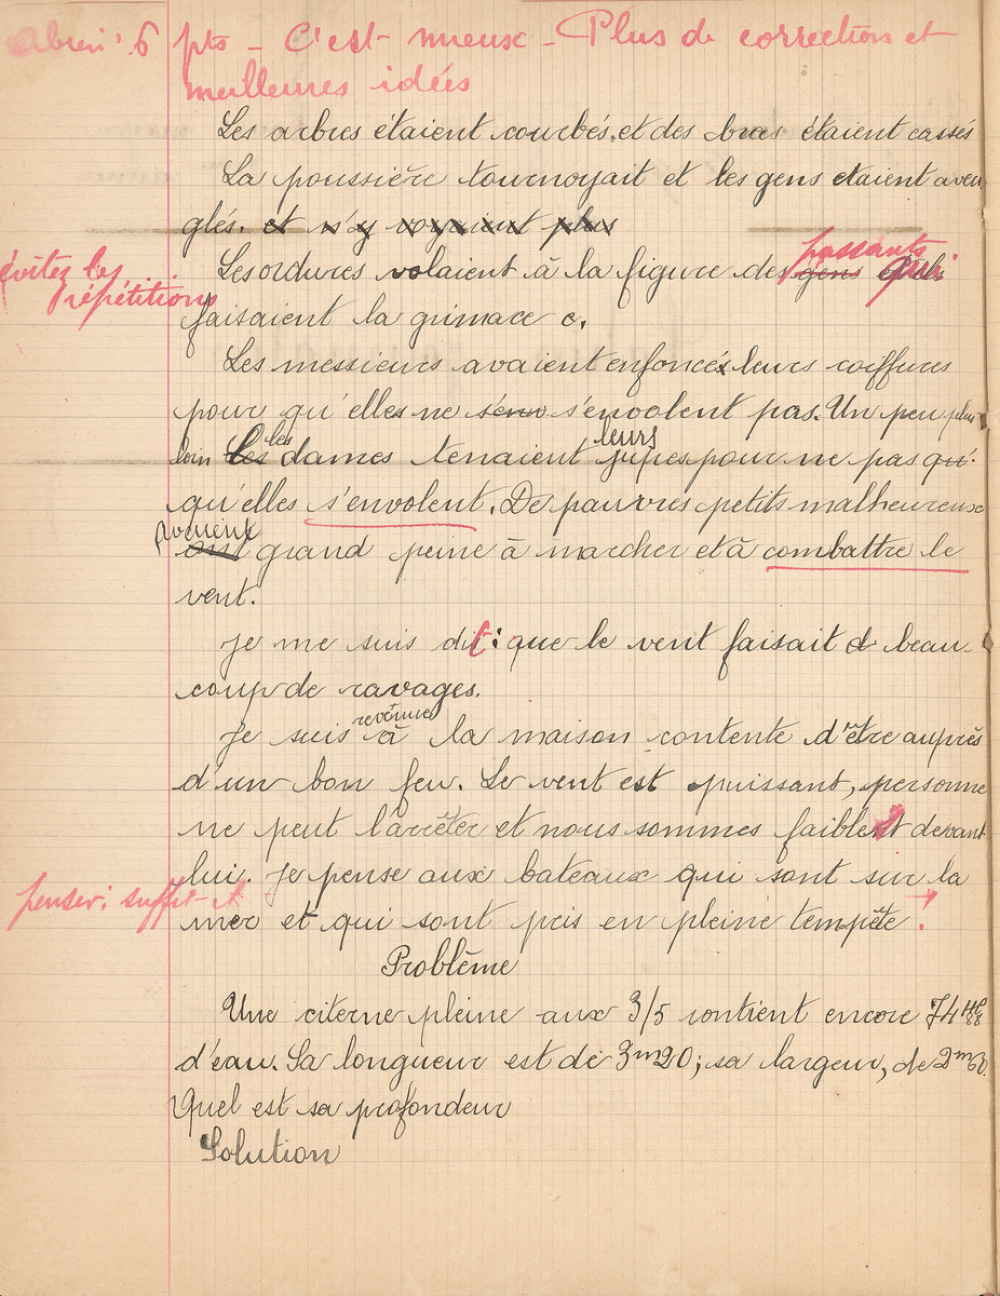 6 pts - C'est mieux - Plus de correction et
meilleures idées
Les arbres étaient courbés et des bras étaient cassés
La poussière tournoyait et les gens etaient aveu
glés. et n'y voyaient plus
passants
évitez les
répétitions
Les ordures volaient à la figure des gens qui
faisaient la grimace c.
Les messieurs avaient enfoncés leurs coiffures
pour qu'elles ne s'env s'envolent pas. Un peu plus
les leurs
loin Les dames tenaient jupes pour ne pas qu'
qu'elles s'envolent. De pauvres petits malheureux
avaient
ont grand peine à marcher et à combattre le
vent.
Je me suis dit : que le vent faisait d beau
coup de ravages.
revenue
Je suis à la maison contente d'être auprès
d'un bon feu. Le vent est puissant, personne
ne peut l'arrêter et nous sommes faibles devant
lui. Je pense aux bateaux qui sont sur la
penser : suffit
mer et qui sont pris en pleine tempête !
Problème
Une citerne pleine aux 3/5 contient encore 74
d'eau. Sa longueur est de 3m20 ; sa largeur, de 2m60.
Quel est sa profondeur
Solution